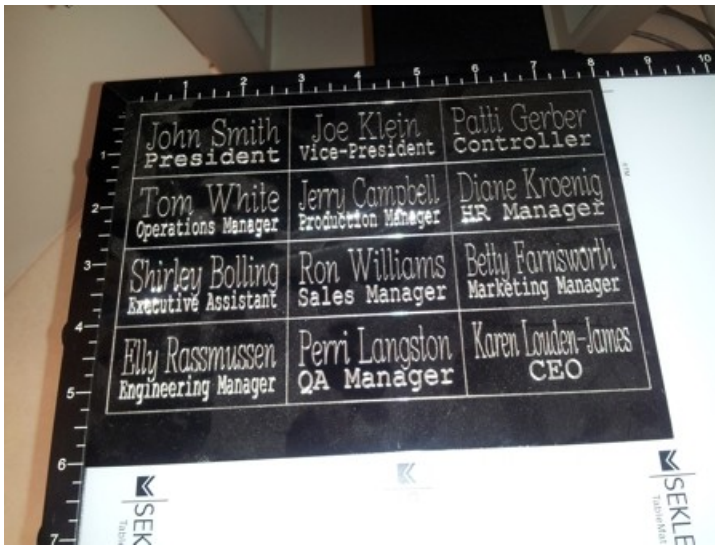 1 2 3 4 5 6 7 8 9 10
1
2
3
4
5
6
7
John Smith
President
Joe Klein
Vice-President
Patti Gerber
Controller
Tom White
Operations Manager
Jerry Campbell
Production Manager
Diane Kroenig
HR Manager
Shirley Bolling
Executive Assistant
Ron Williams
Sales Manager
Betty Farnsworth
Marketing Manager
Elly Rassmussen
Engineering Manager
Perri Langston
QA Manager
Karen Louden-James
CEO
SEK
Table
SEKLE
TableMat